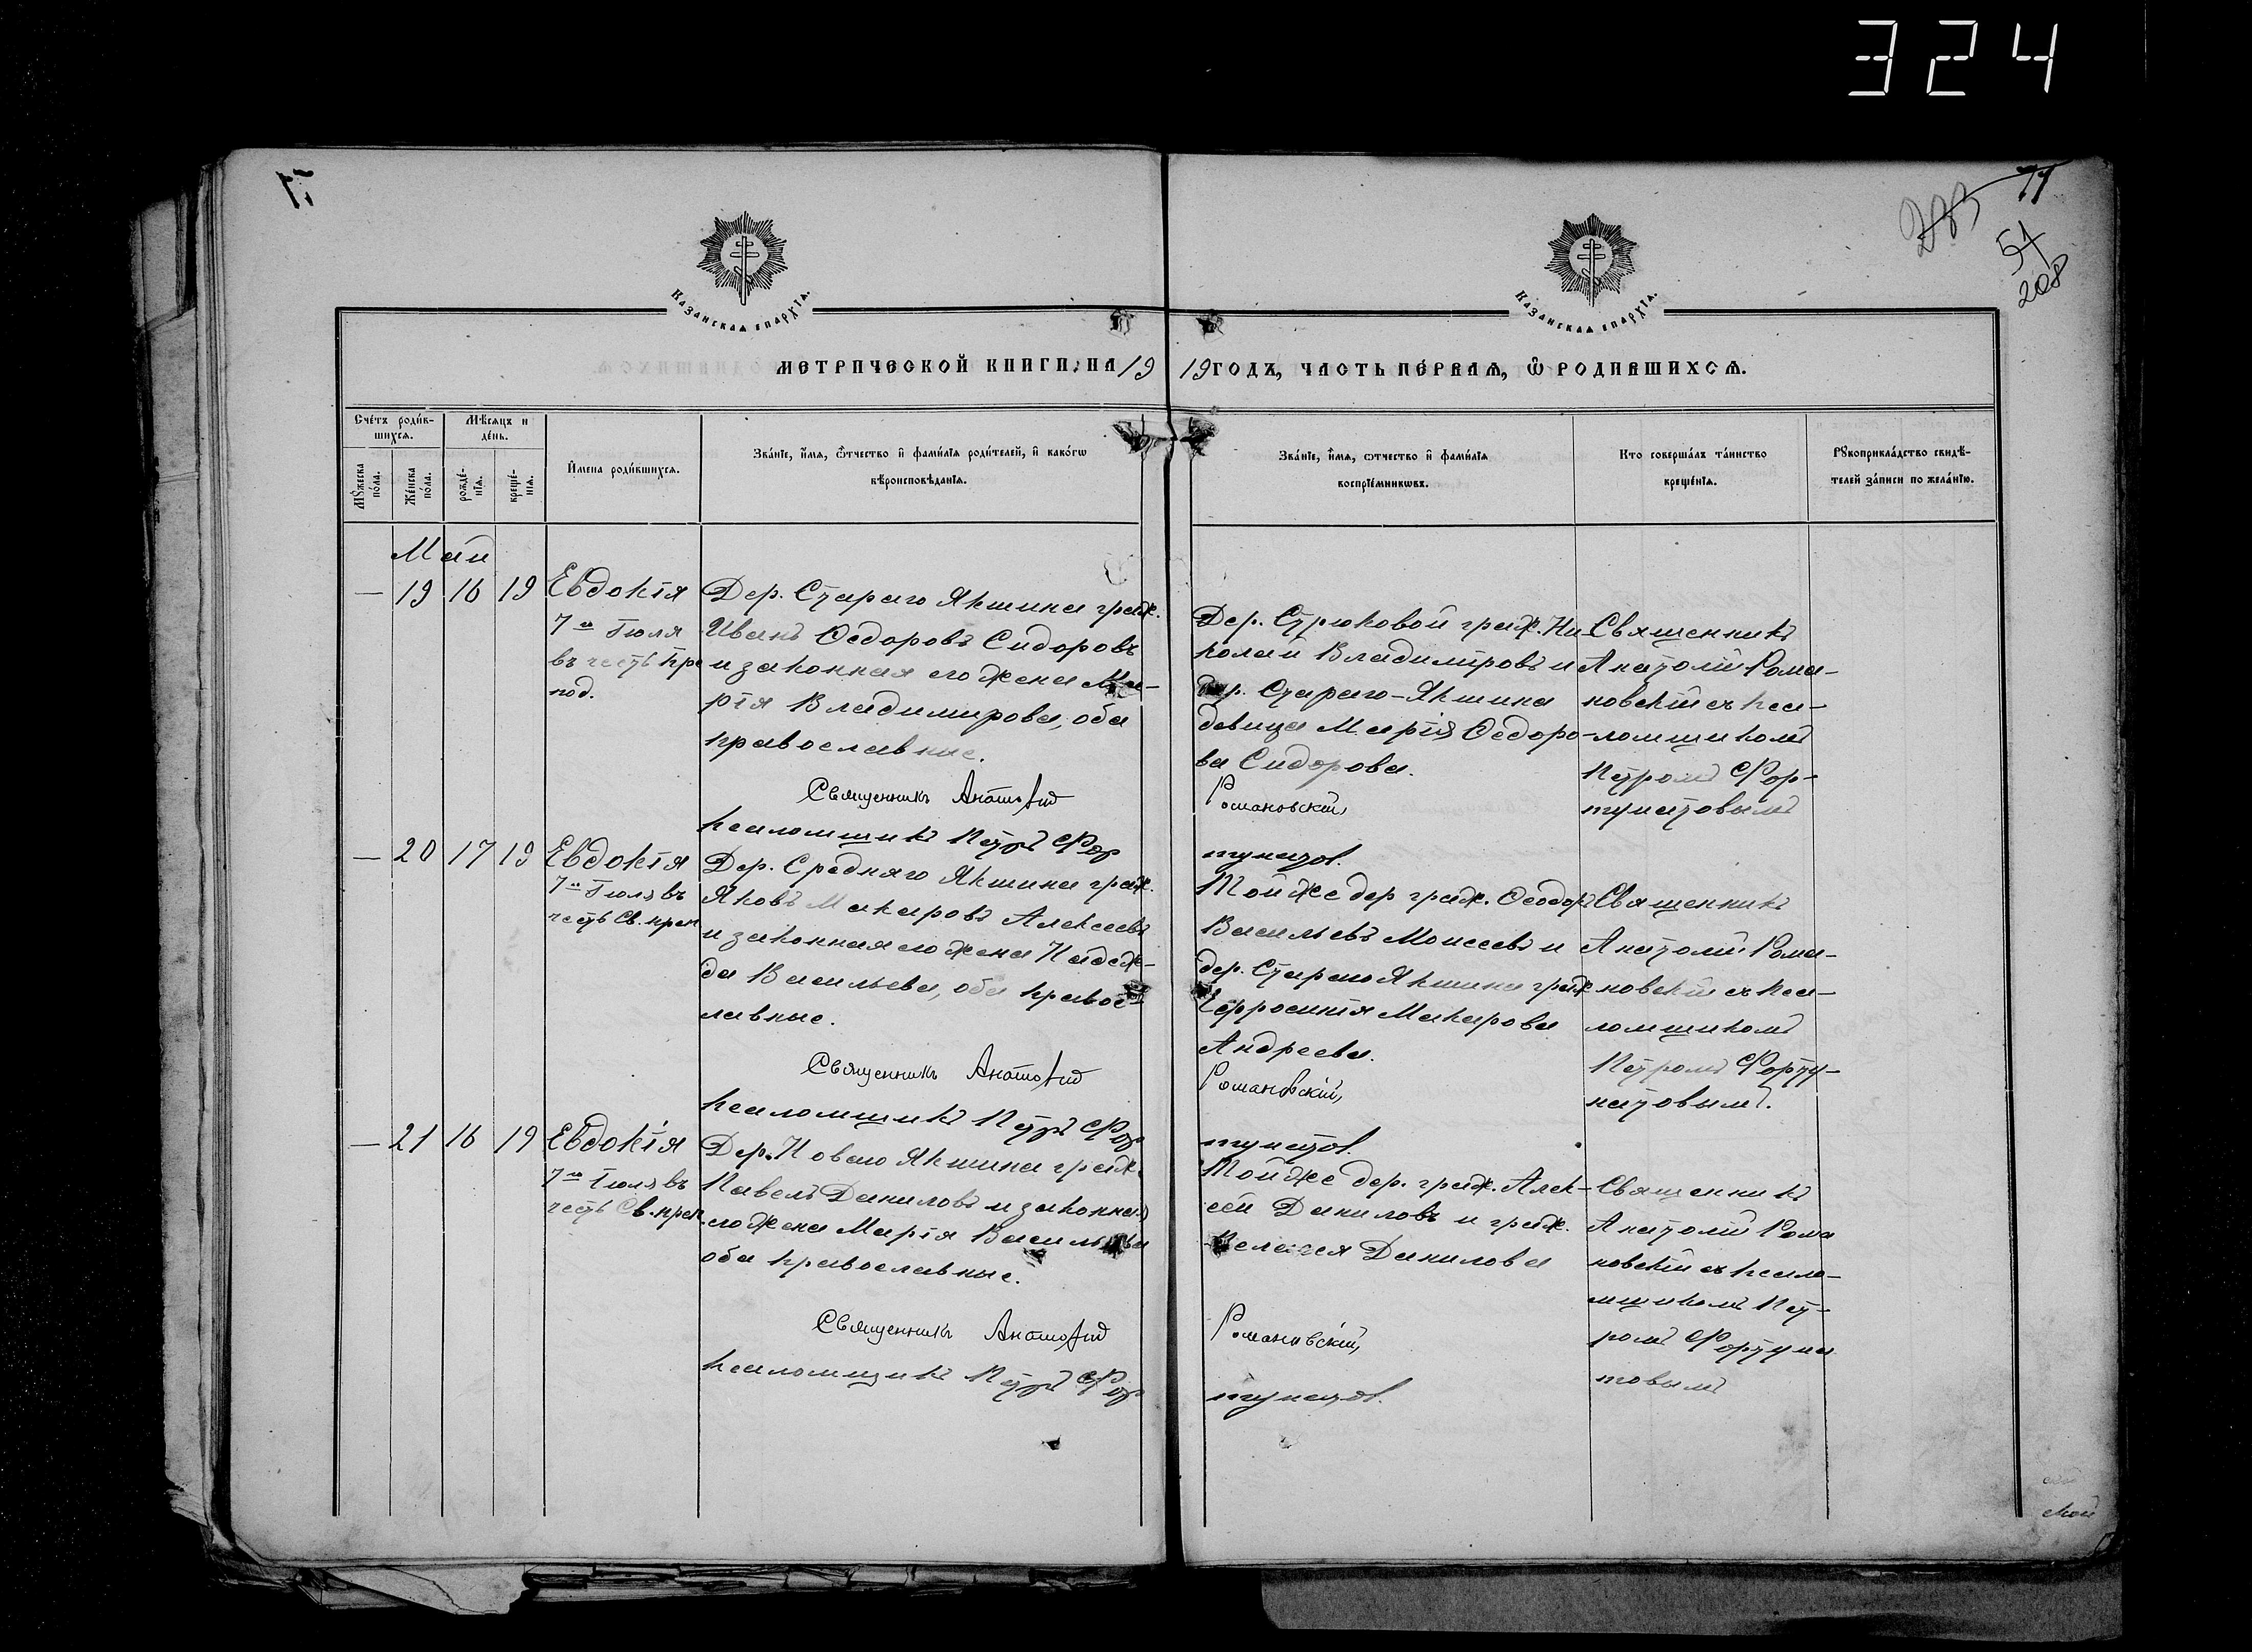 324
77
283
54
208
КАЗАНСКАЯ ЕПАРХІЯ.
КАЗАНСКАЯ ЕПАРХІЯ.
МЕТРИЧЕСКОЙ КНИГИ, НА 19 19 ГОДЪ, ЧАСТЬ ПЕ́РВАЯ, Ѡ РОДИВШИХСЯ.
Сче́тъ роди́в-
шихся.
Мѣ́сяцъ и
де́нь.
Мꙋ́жеска
по́ла.
Же́нска
по́ла.
рожде́-
нїя.
креще́-
нїя.
И҆мена роди́вшихся.
Зва́нїе, и҆́мя, ѻ҆́тчество и҆ фами́лїя роди́телей, и҆ како́гѡ
вѣроисповѣ́данїя.
Зва́нїе, и҆́мя, ѻ҆тчество и҆ фами́лїя
воспрїе́мникѡвъ.
Кто соверша́лъ та́инство
креще́нїя.
Рꙋкоприкла́дство свидѣ́-
телей за́писи по жела́нїю.
Май
— 19 16 19 Евдокія
7го Іюля
въ честь пре
под.
Дер. Стараго Якшина граж.
Иванъ Ѳедоровъ Сидоровъ
и законная его жена Ма-
рія Владимирова, оба
православные.
Священникъ Анатолий
псаломщикъ Петръ Фор
Дер. Стрюковой граж. Ни-
колай Владиміровъ и
дер. Стараго-Якшина
девица Марія Ѳедоро-
ва Сидорова.
Романовскій,
тунатов.
Священникъ
Анатолій Рома-
новскій съ пса-
ломщикомъ
Петромъ Фор-
тунатовымъ
— 20 17 19 Евдокія
7го Іюля въ
честь Св. преп
Дер. Средняго Якшина граж.
Яковъ Макаровъ Алексеевъ
и законная его жена Надеж-
да Васильева, оба правос-
лавные.
Священникъ Анатолий
псаломщикъ Петръ Фор
Той же дер граж. Ѳеодоръ
Васильевъ Моисеевъ и
дер. Стараго Якшина граж
Ефросинія Макарова
Андреева.
Романовскій,
тунатов.
Священникъ
Анатолій Рома-
новскій съ пса-
ломщикомъ
Петромъ Форту-
натовымъ.
— 21 16 19 Евдокія
7го Іюля въ
честь Св. преп.
Дер. Новаго Якшина граж.
Павелъ Даниловъ и законная
его жена Марія Васильева
оба православные.
Священникъ Анатолий
псаломщикъ Петръ Фор
Той же дер. граж. Алек-
сей Даниловъ и граж.
Пелагея Данилова
Романовскій,
тунатов.
Священникъ
Анатолій Рома
новскій съ псало-
мщикомъ Пет-
ромъ Фортуна
товымъ